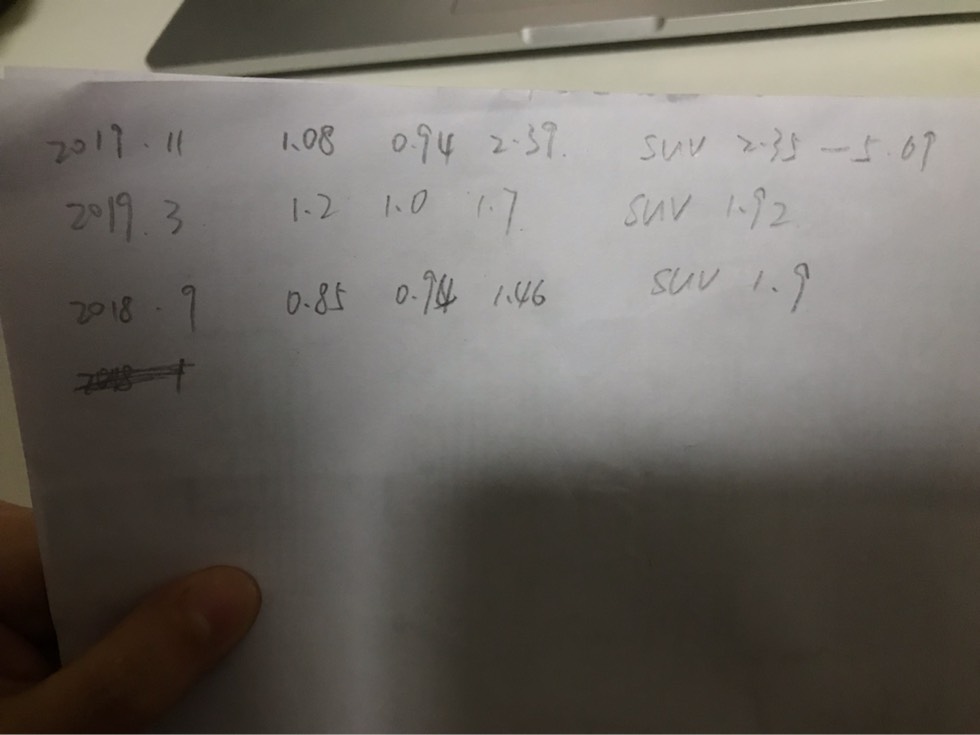 2019.11 1.08 0.94 2.39. SUV 2.35-5.09
2019.3 1.2 1.0 1.7. SUV 1.92
2018.9 0.85 0.94 1.46 SUV 1.9